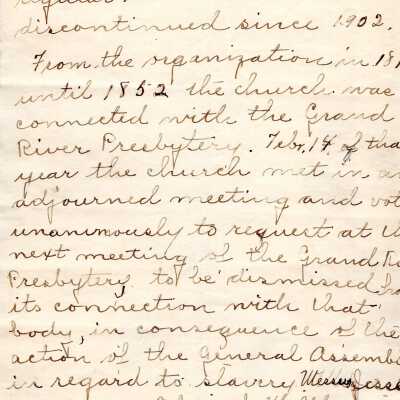 regular.
discontinued since 1902.
From the organization in 181
until 1852 the church was
connected with the Grand
River Presbytery. Febr. 14 of tha
year the church met in an
adjourned meeting and vot
unanimously to request at th
next meeting of the Grand R
Presbytery, to be dismissed fr
its connection with that
body, in consequence of the
action of the General Assemb
in regard to slavery. Messrs Jesse